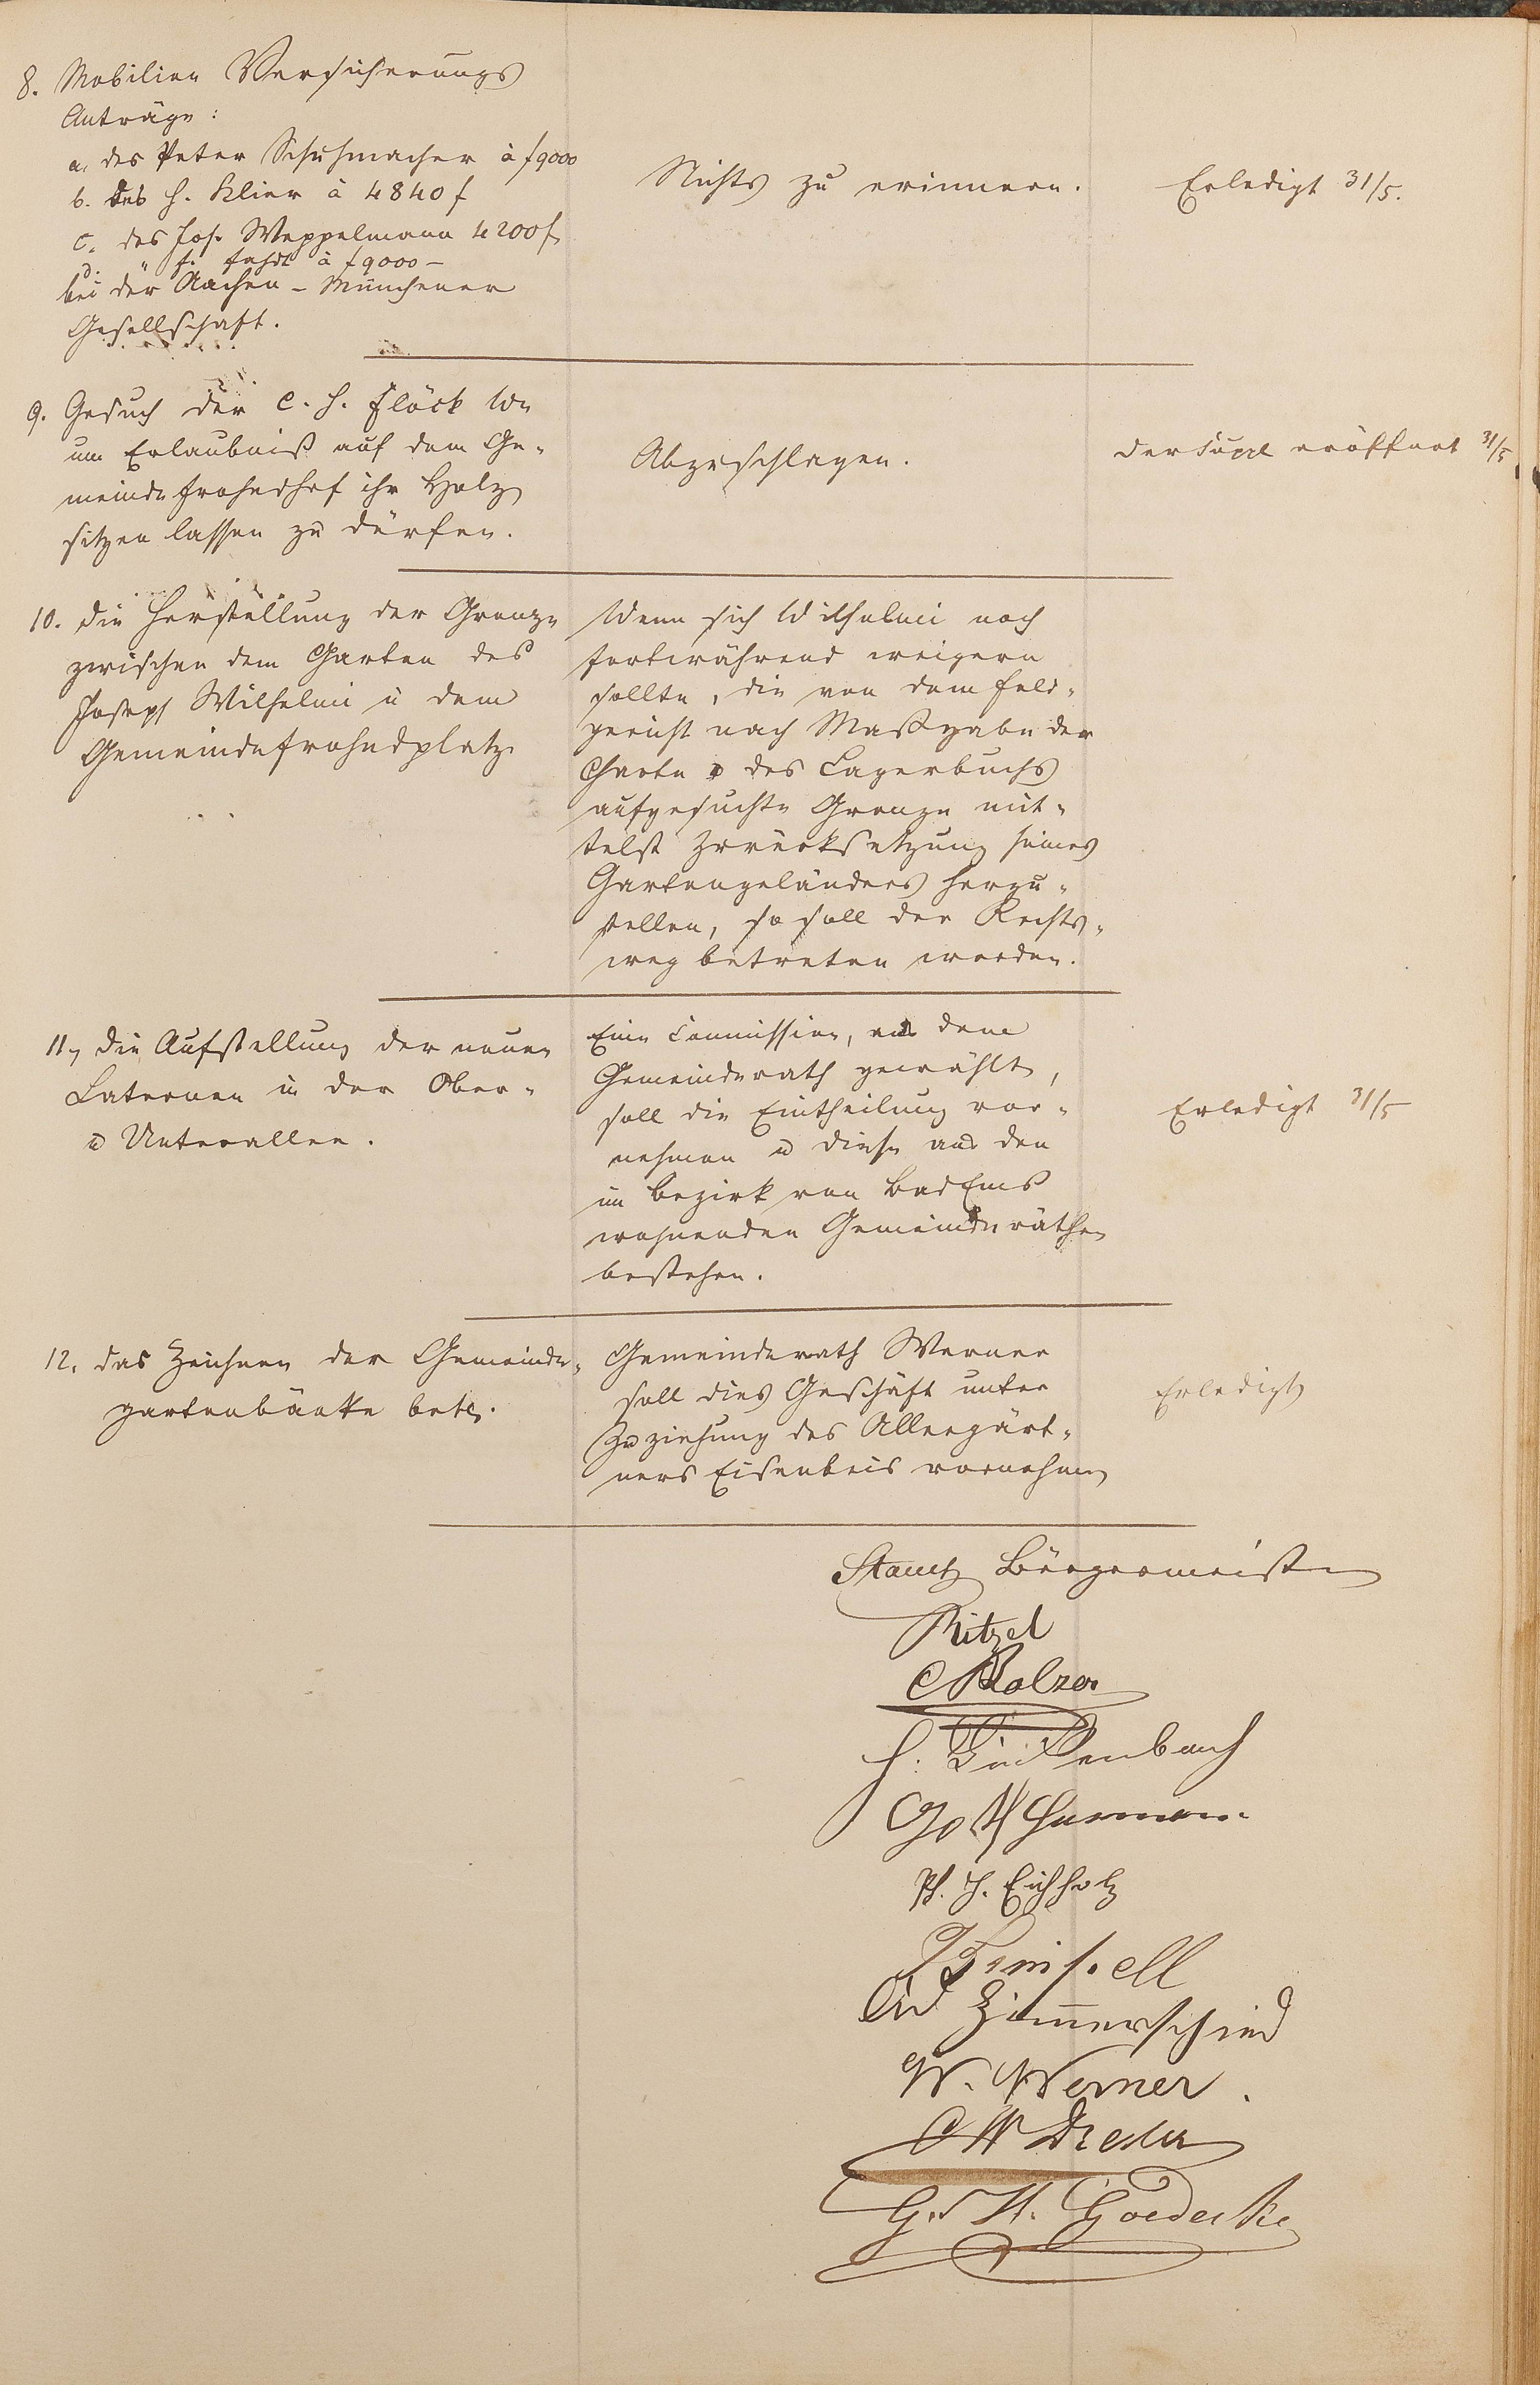 8. Mobilien Versicherungs
Anträge:
a. des Peter Schuhmacher à f 9000
b. des H. Klier à 4840 f
c. des Jos. Weppelmann 4200 f
d. " f. à f 9000 –
bei der Aachen - Münchener
Gesellschaft.
Nichts zu erinnern.
Erledigt 31/5.
9. Gesuch der C. H. Flöck We
um Erlaubniß auf dem Ge-
meindefrohndhof ihr Holz
sitzen lassen zu dürfen.
Abzuschlagen.
der Suppl eröffnet 31/5
10. Die Herstellung der Grenze
zwischen dem Garten des
Joseph Wilhelmi u dem
Gemeindefrohndplatz.
Wenn sich Wilhelmi noch
fortwährend weigern
sollte, die von dem Feld-
gericht nach Maßgabe der
Charte u des Lagerbuchs
aufgesuchte Grenze mit-
telst Zurücksetzung seines
Gartengeländers herzu-
stellen, so soll der Rechts-
weg betreten werden.
11, Die Aufstellung der neuen
Laternen in der Ober-
u Unterallee.
Eine Commission, aus dem
Gemeinderath gewählt,
soll die Eintheilung vor-
nehmen u diese aus den
im Bezirk von Bad Ems
wohnenden Gemeinderäthen
bestehen.
Erledigt 31/5
12. das Zeichnen der Gemeinde-
gartenbänke betr.
Gemeinderath Werner
soll dies Geschäft unter
Zuziehung des Alleegärt-
ners Eisenbeis vornehmen
Erledigt
Stauch Bürgermeister
Ritzel
C Balzer
H. Linkenbach
Gotth Hermann
Ph. H. Eichholz
Ad Zimmerschied
W. Werner.
G. H. Goedecke